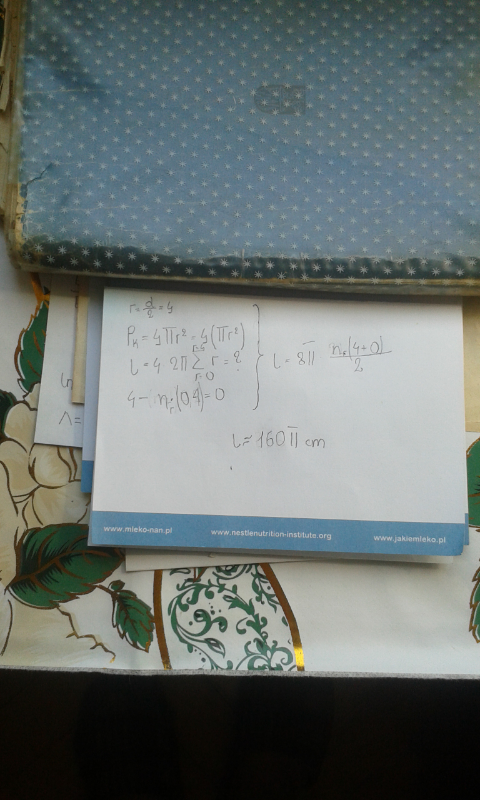 r = d/2 = 4
P_k = 4πr² = 4(πr²)
l = 4 2π Σ r = ?
r=4
r=0
4 - n_r(0,4) = 0
l = 8π n_r(4+0)/2
l ≈ 160π cm
www.mleko-nan.pl
www.nestlenutrition-institute.org
www.jakiemleko.pl